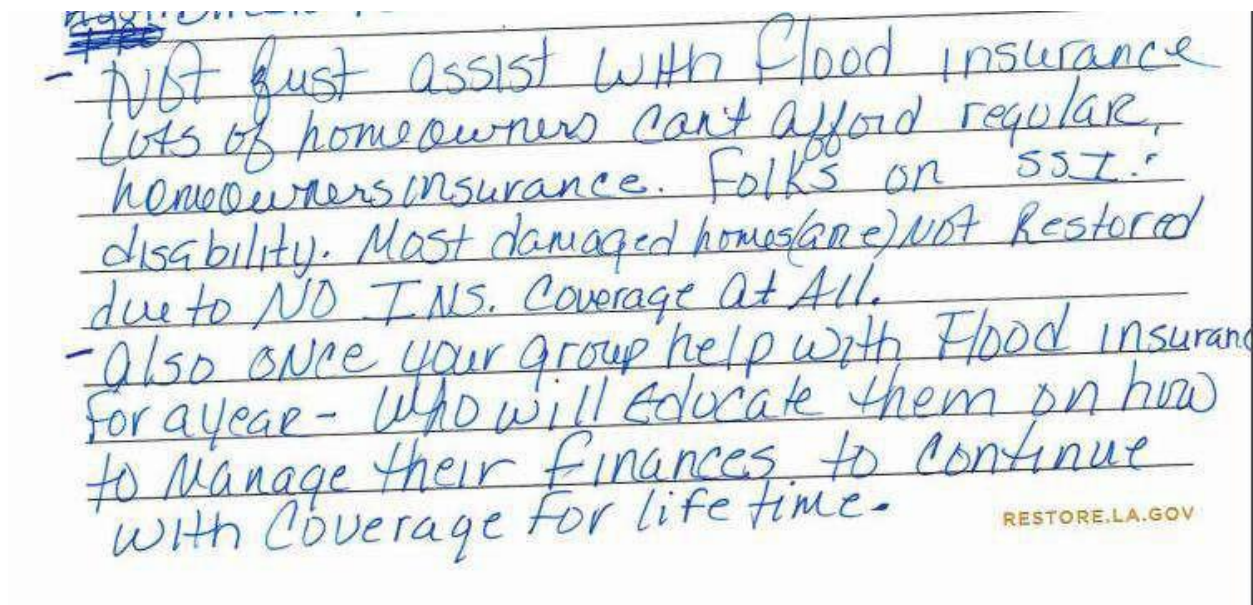 - Not just assist with Flood insurance
Lots of homeowners can't afford regular,
homeowners insurance. Folks on SSI:
disability. Most damaged homes (are) Not Restored
due to NO INS. Coverage at All.
- Also once your group help with Flood insuranc
For a year - Who will Educate them on how
to Manage their finances to continue
with Coverage for life time.
RESTORE.LA.GOV